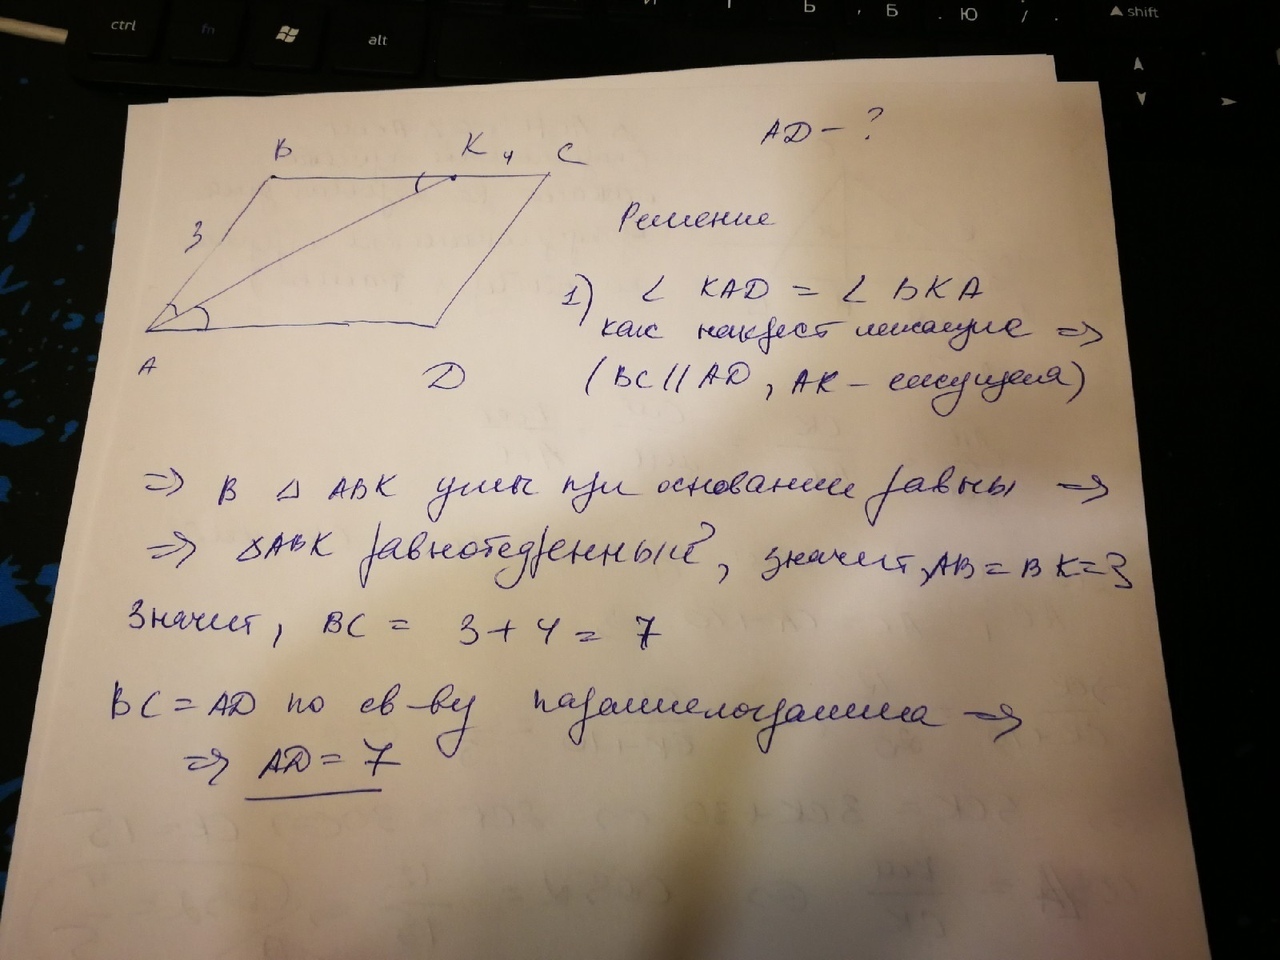 ctrl fn alt Ь , Б . Ю / . shift
AD - ?
B K 4 C
3
A D
Решение
1) ∠ KAD = ∠ BKA
как накрест лежащие =>
(BC || AD, AK - секущая)
=> В △ ABK углы при основании равны =>
=> △ABK равнобедренный, значит, AB = BK = 3
Значит, BC = 3 + 4 = 7
BC = AD по св-ву параллелограмма =>
=> AD = 7